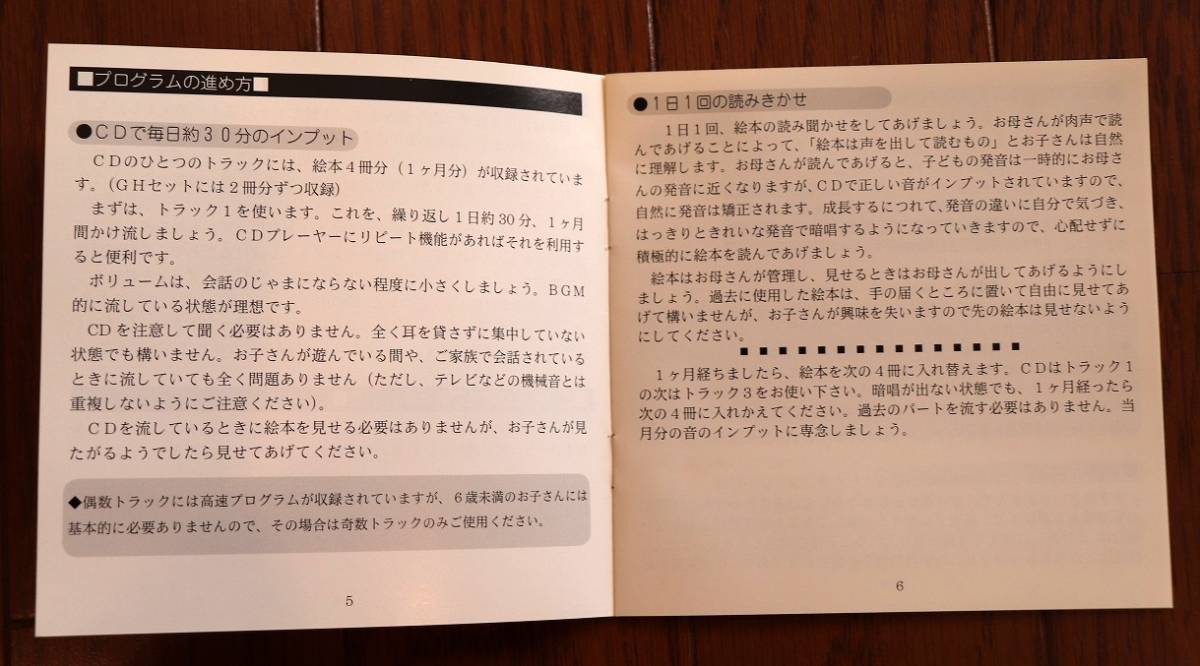 ■プログラムの進め方■
●CDで毎日約30分のインプット
CDのひとつのトラックには、絵本4冊分(1ヶ月分)が収録されていま
す。(GHセットには2冊分ずつ収録)
まずは、トラック1を使います。これを、繰り返し1日約30分、1ヶ月
間かけ流しましょう。CDプレーヤーにリピート機能があればそれを利用す
ると便利です。
ボリュームは、会話のじゃまにならない程度に小さくしましょう。BGM
的に流している状態が理想です。
CDを注意して聞く必要はありません。全く耳を貸さずに集中していない
状態でも構いません。お子さんが遊んでいる間や、ご家族で会話されている
ときに流していても全く問題ありません(ただし、テレビなどの機械音とは
重複しないようにご注意ください)。
CDを流しているときに絵本を見せる必要はありませんが、お子さんが見
たがるようでしたら見せてあげてください。
◆偶数トラックには高速プログラムが収録されていますが、6歳未満のお子さんには
基本的に必要ありませんので、その場合は奇数トラックのみご使用ください。
5
●1日1回の読みきかせ
1日1回、絵本の読み聞かせをしてあげましょう。お母さんが肉声で読
んであげることによって、「絵本は声を出して読むもの」とお子さんは自然
に理解します。お母さんが読んであげると、子どもの発音は一時的にお母さ
んの発音に近くなりますが、CDで正しい音がインプットされていますので、
自然に発音は矯正されます。成長するにつれて、発音の違いに自分で気づき、
はっきりときれいな発音で暗唱するようになっていきますので、心配せずに
積極的に絵本を読んであげましょう。
絵本はお母さんが管理し、見せるときはお母さんが出してあげるようにし
ましょう。過去に使用した絵本は、手の届くところに置いて自由に見せてあ
げて構いませんが、お子さんが興味を失いますので先の絵本は見せないよう
にしてください。
■ ■ ■ ■ ■ ■ ■ ■ ■ ■ ■ ■ ■ ■ ■
1ヶ月経ちましたら、絵本を次の4冊に入れ替えます。CDはトラック1
の次はトラック3をお使い下さい。暗唱が出ない状態でも、1ヶ月経ったら
次の4冊に入れかえてください。過去のパートを流す必要はありません。当
月分の音のインプットに専念しましょう。
6